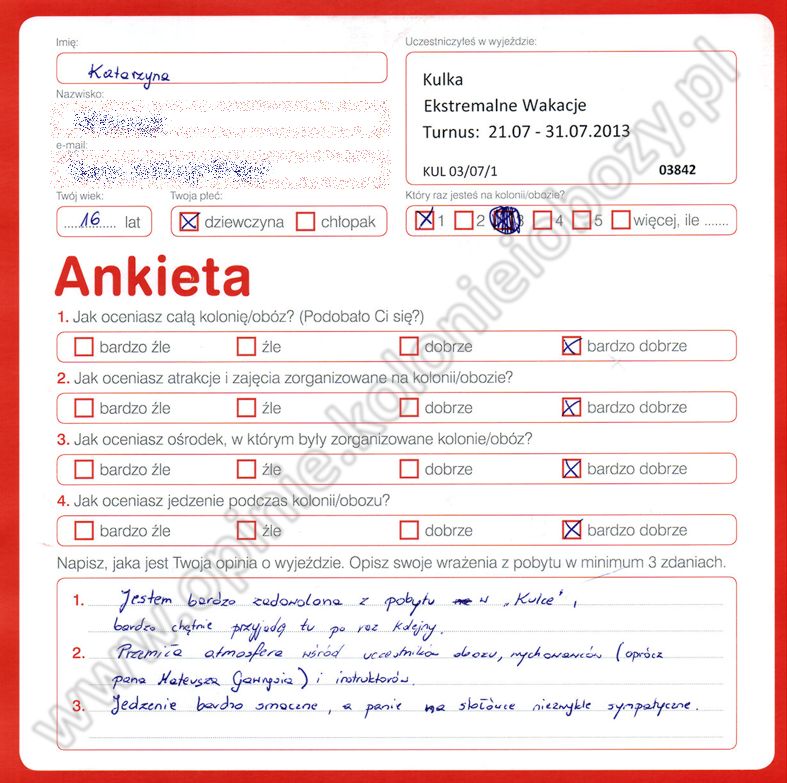 Imię:
Katarzyna
Nazwisko:
e-mail:
Twój wiek:
16 lat
Twoja płeć:
dziewczyna chłopak
Uczestniczyłeś w wyjeździe:
Kulka
Ekstremalne Wakacje
Turnus: 21.07 - 31.07.2013
KUL 03/07/1 03842
Który raz jesteś na kolonii/obozie?
1 2 3 4 5 więcej, ile .......
Ankieta
1. Jak oceniasz całą kolonię/obóz? (Podobało Ci się?)
bardzo źle źle dobrze bardzo dobrze
2. Jak oceniasz atrakcje i zajęcia zorganizowane na kolonii/obozie?
bardzo źle źle dobrze bardzo dobrze
3. Jak oceniasz ośrodek, w którym były zorganizowane kolonie/obóz?
bardzo źle źle dobrze bardzo dobrze
4. Jak oceniasz jedzenie podczas kolonii/obozu?
bardzo źle źle dobrze bardzo dobrze
Napisz, jaka jest Twoja opinia o wyjeździe. Opisz swoje wrażenia z pobytu w minimum 3 zdaniach.
1. Jestem bardzo zadowolona z pobytu w „Kulce",
bardzo chętnie przyjadę tu po raz kolejny.
2. Przemiła atmosfera wśród uczestników obozu, wychowawców (oprócz
pana Mateusza) i instruktorów.
3. Jedzenie bardzo smaczne, a panie na stołówce niezwykle sympatyczne.
www.opinie.kolonieiobozy.pl